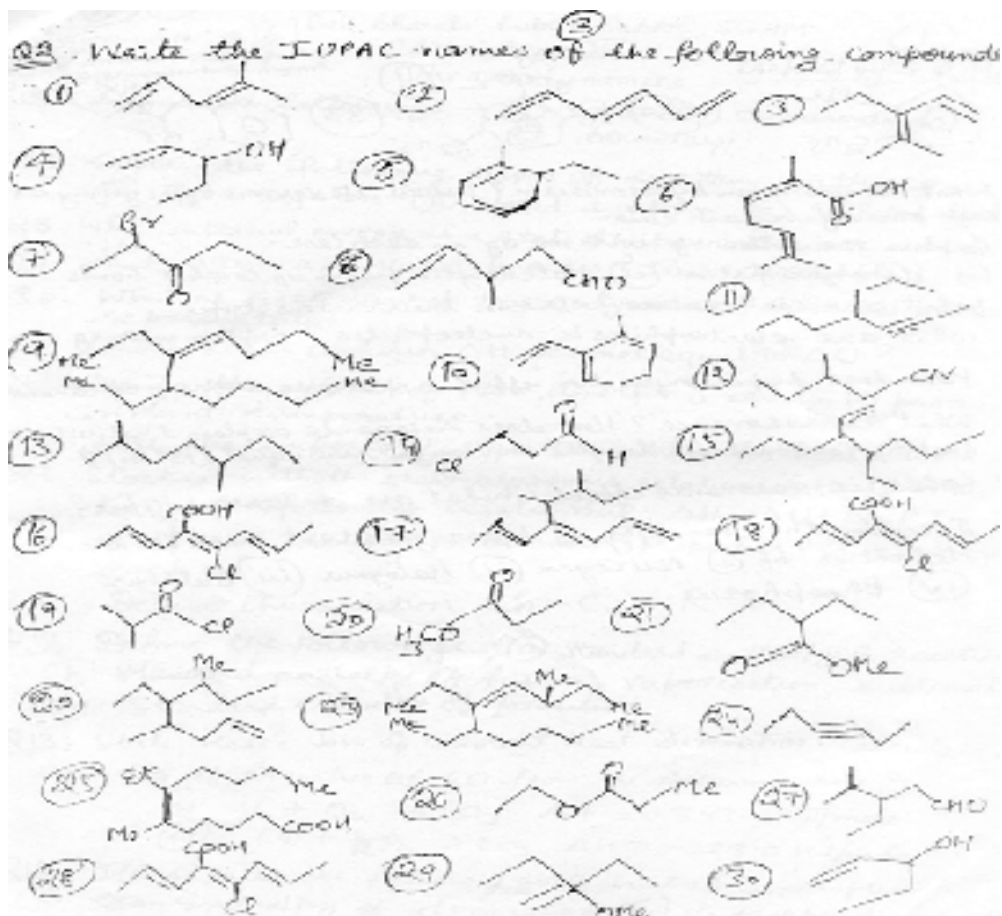 ②
Q3. Write the IUPAC names of the following compounds
① ② ③
④ OH ⑤ ⑥ OH
⑦ Br O ⑧ CHO ⑪
⑨ Me Me Me Me ⑩ ⑫ CN
⑬ ⑭ Cl O H ⑮
⑯ COOH Cl ⑰ ⑱ COOH Cl
⑲ O Cl ⑳ O H3CO ㉑ O OMe
Me Me Me Me Me Me ㉔
㉕ Et Me Me COOH ㉖ O O Me ㉗ CHO
㉘ COOH Cl ㉙ OMe ㉚ OH